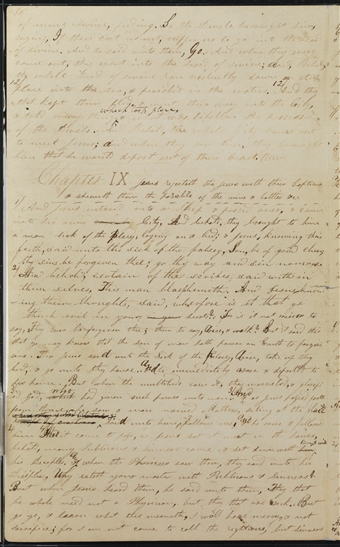 herd of swine, feeding. So the
begun, If thou cast us out, suffer us to go into the herd
of swine. And he said unto them, Go. And when they were
come out, they went into the herd of swine; and, behold,
the whole herd of swine ran violently down a steep
place into the sea, & perished in the waters. And they
that kept them fled, & went their ways into the city,
& told every thing which took place, & what was befallen the possessed
of the devils. And behold, the whole city came out
to meet Jesus; and when they saw him, they besought
him that he would depart out of their coasts
Chapter IX Jesus rejecteth the jews with their baptism
& sheweth them the parable of the wine & bottles &c
And Jesus entered into a ship & passed over, & came
into his own City. And behold, they brought to him
a man sick of the palsy, laying on a bed; & Jesus, knowing their
faith, said unto the sick of the palsey, Son, be of good cheer
thy sins be forgiven thee; go thy way and sin no more.
And behold, certain of the scribes, said within
them selves, This man blasphemeth. And Jesus know-
ing their thoughts, said, wherefore is it that ye
think evil in your hearts? For is it not easier to
say, Thy sins be forgiven thee; than to say, Arise, & walk? But I said this
that ye may know that the son of man hath power on Earth to forgive
sins. Then Jesus said unto the sick of the palsey, Arise, take up thy
bed, & go unto thy house. And he immediately arose & departed to
his house. But when the multitudes saw it, they marveled, & glorified
God, which had given such power unto men. And as Jesus passed forth
from thence, he saw a man named Matthew, sitting at the
And he said unto him, follow me, And he arose & followed
him. And it came to pass, as Jesus sat at meat in the house,
behold, many Publicans & sinners came, & sat down with him
his disciples. And when the Pharisees saw them, they said unto his
disciples, Why eateth your master with Publicans & sinners?
But when Jesus heard them, he said unto them, They that
be whole need not a Physician, but they that are sick. But
go ye, & learn what this meaneth, I will have mercy, & not
sacrifice; for I am not come to call the righteous, but sinners